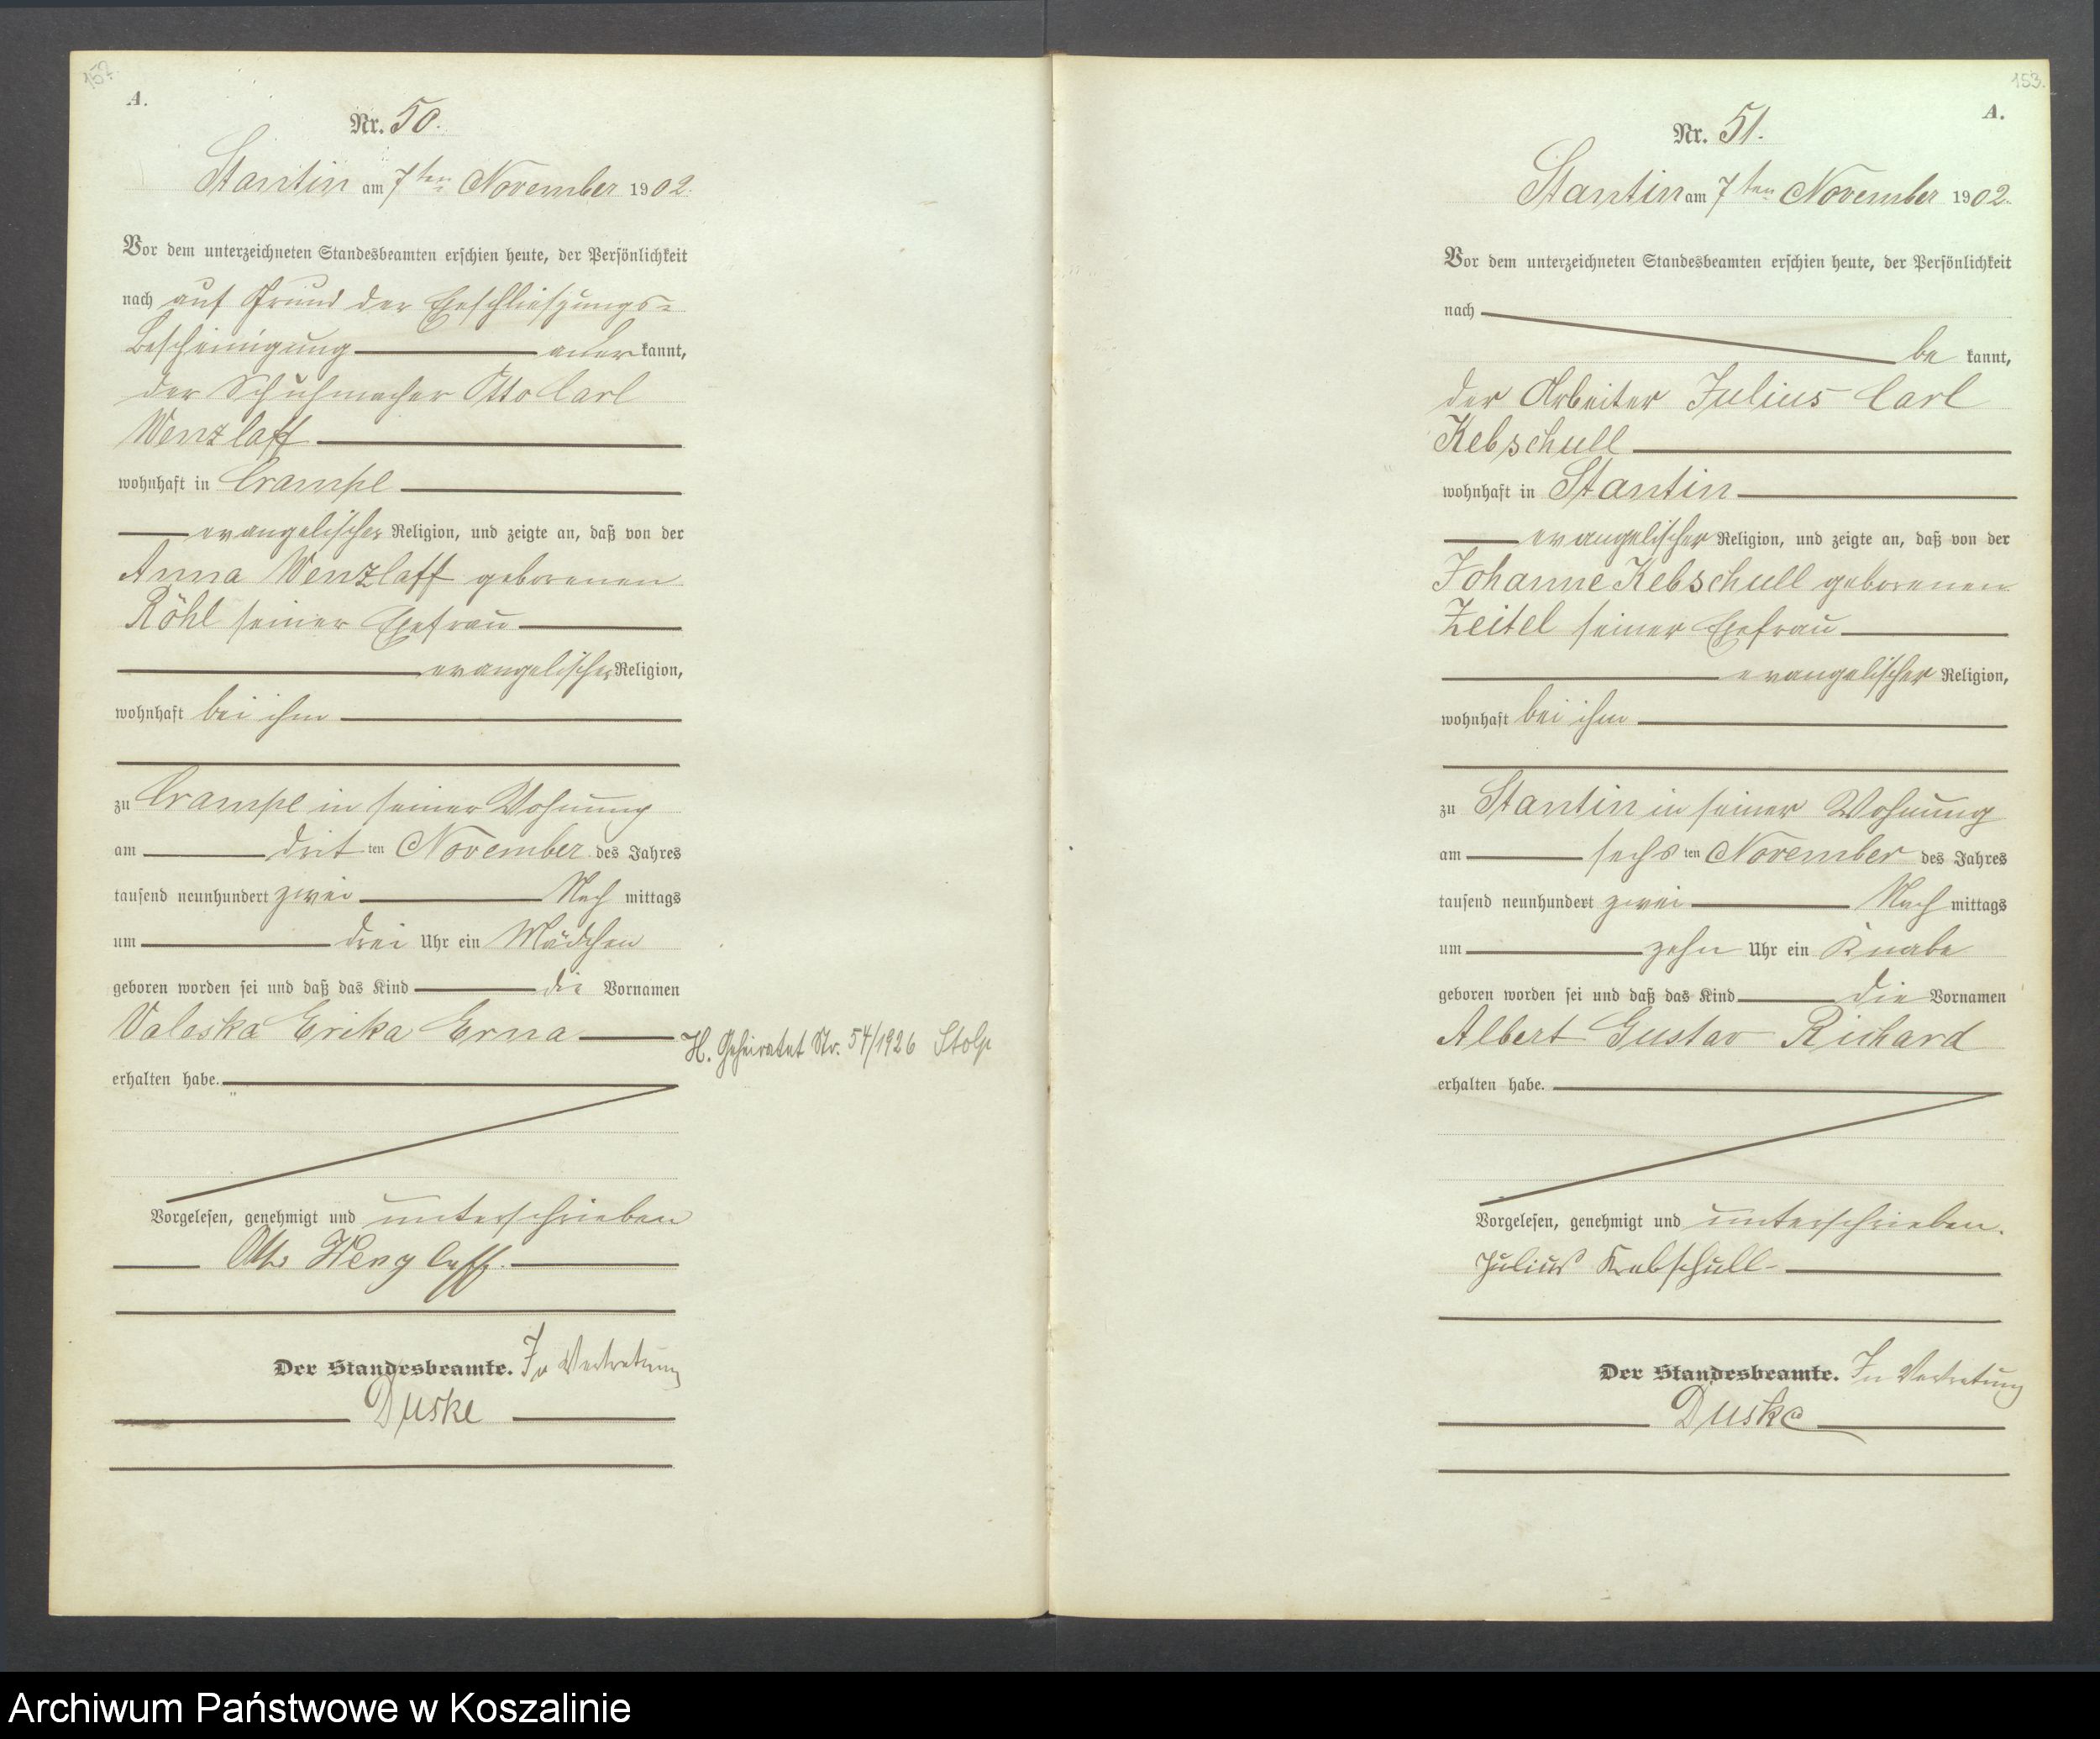 152.
A.
Nr. 50.
Stantin am 7ten November 1902.
Vor dem unterzeichneten Standesbeamten erschien heute, der Persönlichkeit
nach auf Grund der Eheschließungs=
Bescheinigung anerkannt,
der Schuhmacher Otto Carl
Wenzlaff
wohnhaft in Crampe
evangelischer Religion, und zeigte an, daß von der
Anna Wenzlaff geborenen
Röhl seiner Ehefrau
evangelischer Religion,
wohnhaft bei ihm
zu Crampe in seiner Wohnung
am dritten November des Jahres
tausend neunhundert zwei Nachmittags
um drei Uhr ein Mädchen
geboren worden sei und daß das Kind die Vornamen
Valeska Erika Erna
H. Geheiratet Nr. 54/1926 Stolp
erhalten habe.
Vorgelesen, genehmigt und unterschrieben
Otto Wenzlaff.
Der Standesbeamte. In Vertretung
Duske
153.
A.
Nr. 51.
Stantin am 7ten November 1902.
Vor dem unterzeichneten Standesbeamten erschien heute, der Persönlichkeit
nach
be kannt,
der Arbeiter Julius Carl
Kebschull
wohnhaft in Stantin
evangelischer Religion, und zeigte an, daß von der
Johanne Kebschull geborenen
Zeitel seiner Ehefrau
evangelischer Religion,
wohnhaft bei ihm
zu Stantin in seiner Wohnung
am sechsten November des Jahres
tausend neunhundert zwei Nachmittags
um zehn Uhr ein Knabe
geboren worden sei und daß das Kind die Vornamen
Albert Gustav Richard
erhalten habe.
Vorgelesen, genehmigt und unterschrieben.
Julius Kebschull
Der Standesbeamte. In Vertretung
Duske
Archiwum Państwowe w Koszalinie